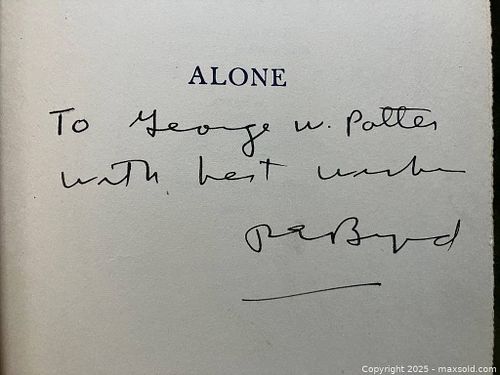 ALONE
To George W. Potter
with best wishes
R E Byrd
Copyright 2025 - maxsold.com